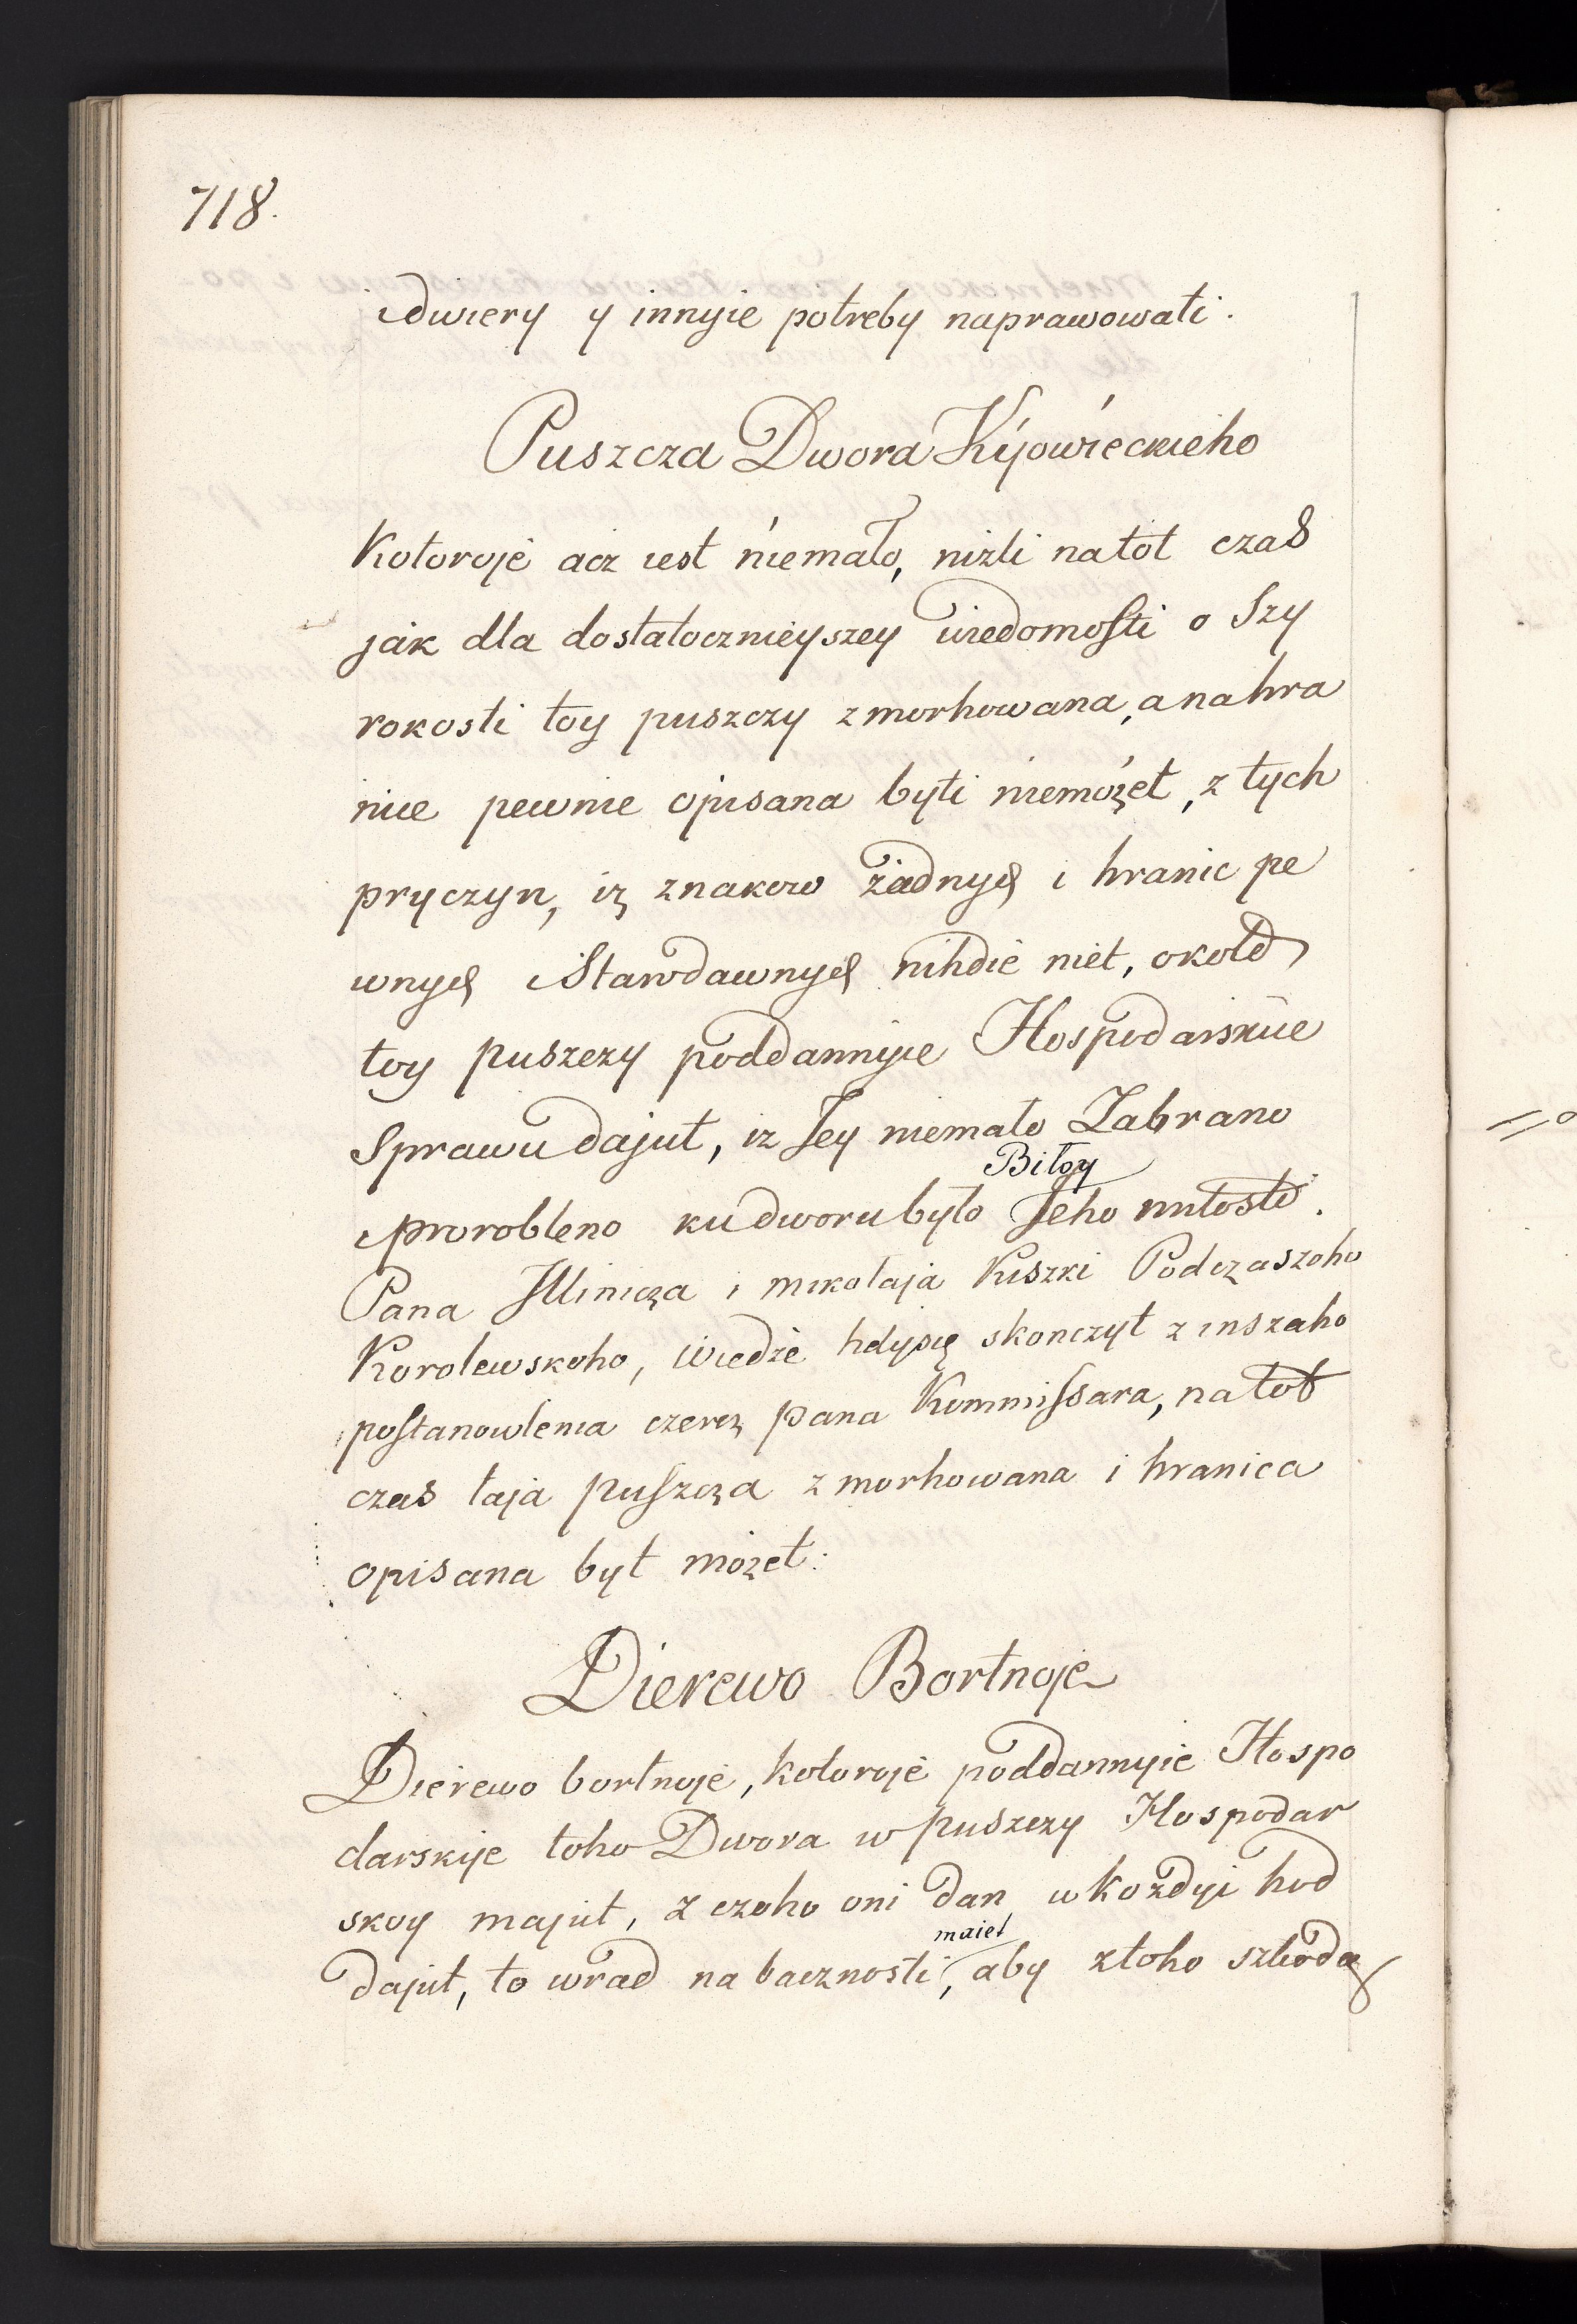 718.
dwiery y innyie potreby naprawowati.
Puszcza Dwora Kijowieckieho
Kotoroje acz iest niemało, niżli natot czas
jak dla dostatocznieyszey wiedomosti o Szy
rokosti toy puszczy zmorhowana, a na hra
nice pewnie opisana byti niemożet, z tych
pryczyn, iż znakow żadnych i hranic pe
wnych Starodawnych nihdie niet, około
toy puszczy poddannyie Hospodarskiie
Sprawu dajut, iz Jey niemało Zabrano
Biłoy
prorobleno ku dworu było Jeho miłosti.
Pana Illinicza i mikołaja Kiszki Podczaszoho
Korolewskoho, wiedże hdysię skonczyt z inszaho
postanowlenia czerez pana Kommissara, na tot
czas taja puszcza zmorhowana i hranica
opisana byt możet:
Dierewo Bortnoje
Dierewo bortnoje, kotoroje poddannyie Hospo
darskije toho Dwora w puszczy Hospodar
skoy majut, z czoho oni dan w kożdyi hod
maiet
dajut, to wrad na bacznosti, aby ztoho szkoda